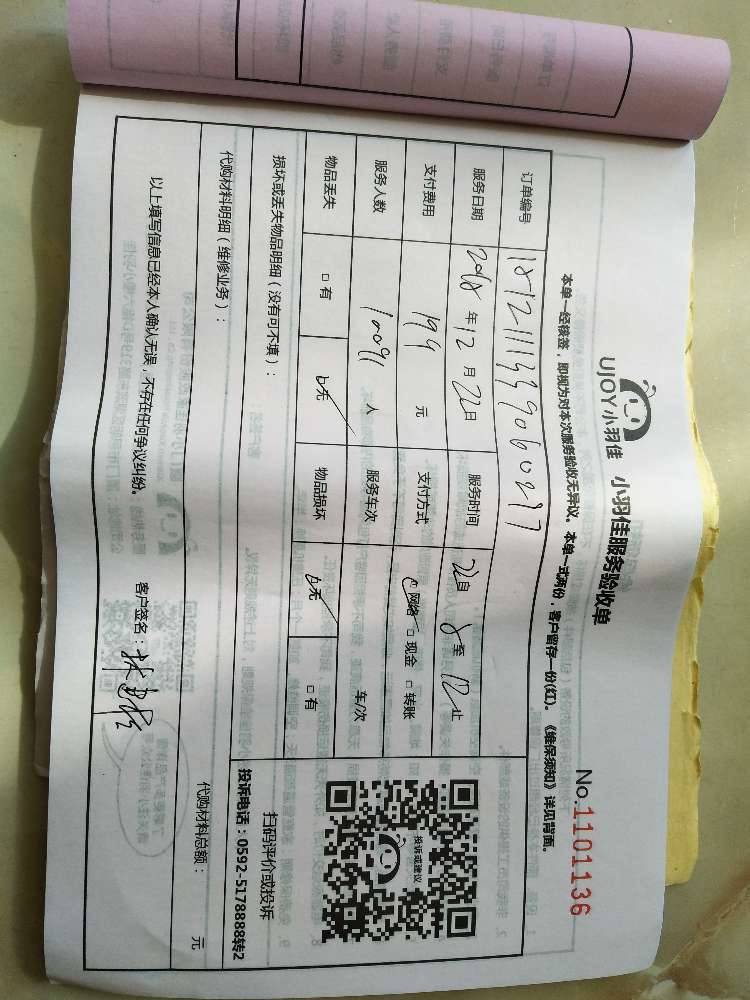 UJOY小羽佳 小羽佳服务验收单
No.1101136
本单一经核签，即视为对本次服务验收无异议。本单一式两份，客户留存一份(红)。《维保须知》详见背面。
订单编号
服务日期 2018 年 12 月 22日 服务时间 22自 8 至 12 止
支付费用 199 元 支付方式 网络 □ 现金 □ 转账
服务人数 人 服务车次 车/次
物品丢失 □ 有 无 物品损坏 无 □ 有
损坏或丢失物品明细（没有可不填）：
代购材料明细（维修业务）：
代购材料总额： 元
以上填写信息已经本人确认无误，不存在任何争议纠纷。 客户签名：
投诉或建议
扫码评价或投诉
投诉电话：0592-5178888转2